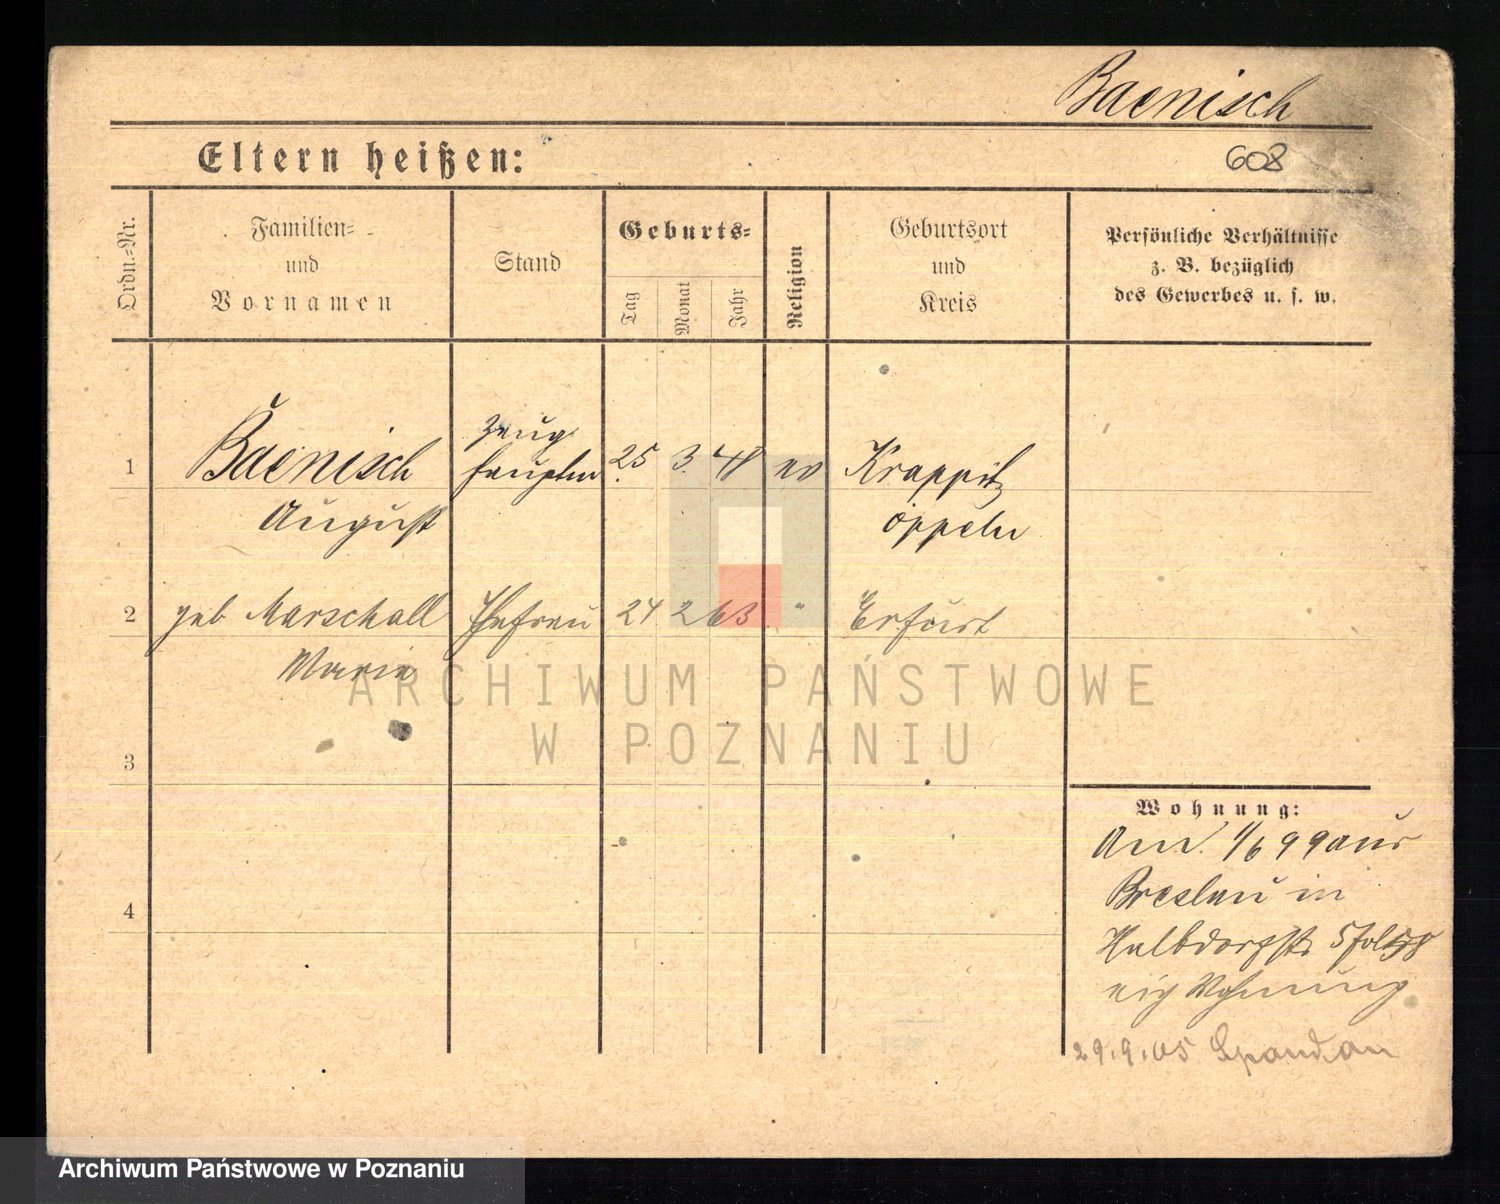 Baenisch
Eltern heißen:
608
Ordn.-Nr.
Familien-
und
Vornamen
Stand
Geburts-
Tag
Monat
Jahr
Religion
Geburtsort
und
Kreis
Persönliche Verhältnisse
z. B. bezüglich
des Gewerbes u. s. w.
1
Baenisch
August
Zeug
hauptm
25. 3. 48
ev
Krappitz
Oppeln
2
geb Marschall
Marie
Ehefrau
24 2 63
"
Erfurt
3
4
Wohnung:
Am 1/6 99 aus
Breslau in
Halbdorfstr 5
eig Wohnung
29.9.05 Spandau
ARCHIWUM PAŃSTWOWE
W POZNANIU
Archiwum Państwowe w Poznaniu